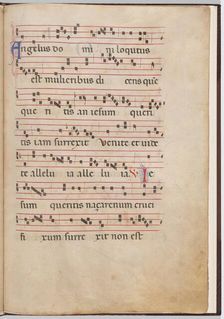 Angelus do mi ni locutus
est mulieribus di cens que
que ri tis an iesum queri
tis iam surrexit Venite et uite
te allelu ia alle lu ia Ie
sum queritis naçarenum cruci
fi xum surre xit non est